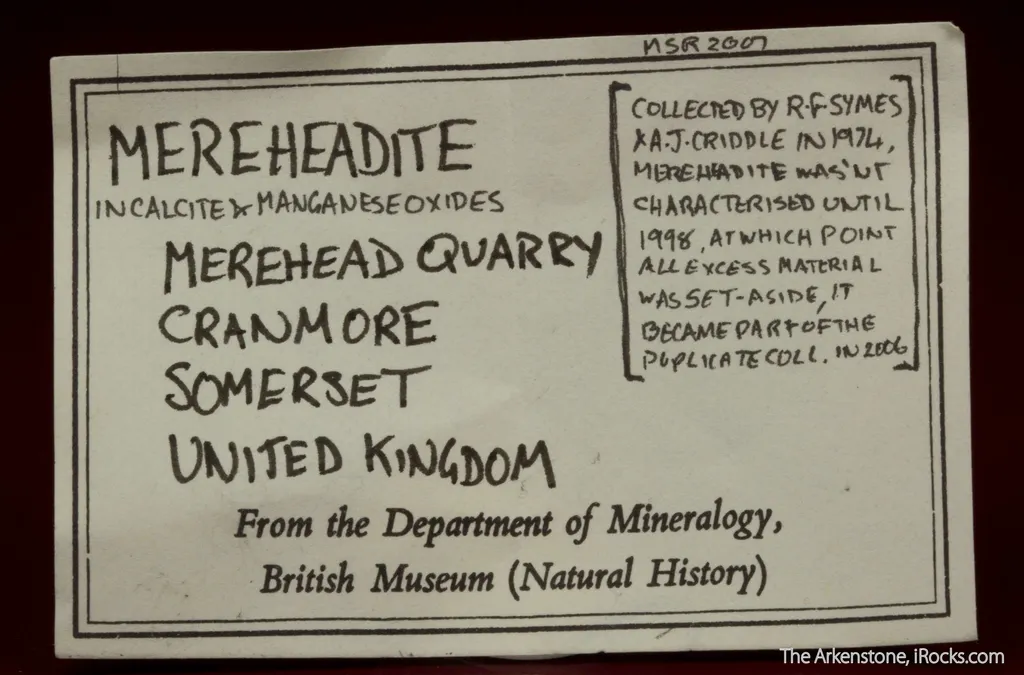 MSR 2007
MEREHEADITE
IN CALCITE & MANGANESE OXIDES
MEREHEAD QUARRY
CRANMORE
SOMERSET
UNITED KINGDOM
[COLLECTED BY R.F SYMES
& A.J. CRIDDLE IN 1974,
MEREHEADITE WAS'NT
CHARACTERISED UNTIL
1998, AT WHICH POINT
ALL EXCESS MATERIAL
WAS SET-ASIDE, IT
BECAME PART OF THE
DUPLICATE COLL. IN 2006]
From the Department of Mineralogy,
British Museum (Natural History)
The Arkenstone, iRocks.com